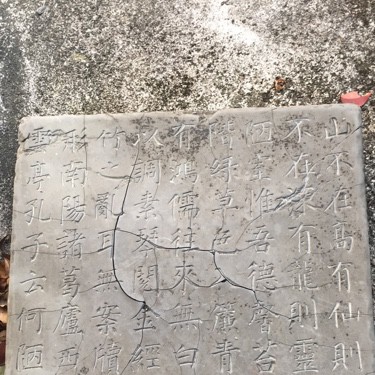 山不在高有仙則
不在深有龍則靈
陋室惟吾德馨苔
階綠草色入簾青
有鴻儒往來無白
以調素琴閱金經
竹之亂耳無案牘
形南陽諸葛廬西
雲亭孔子云何陋